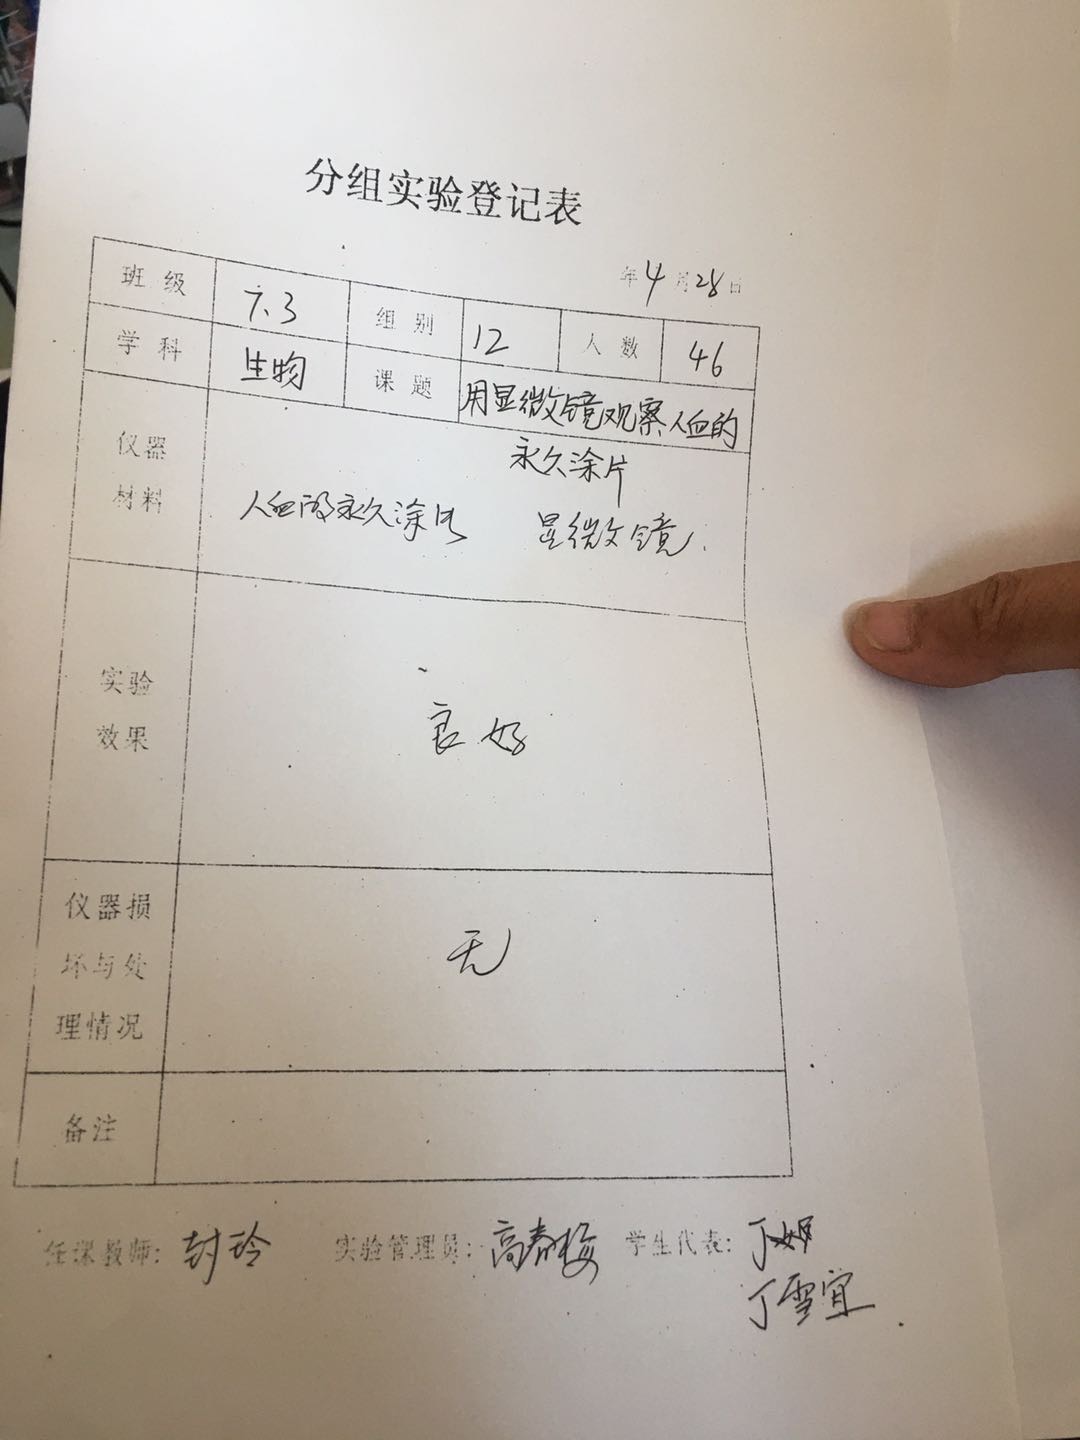 分组实验登记表
年4月28日
班级 7.3 组别 12 人数 46
学科 生物 课题 用显微镜观察人血的
永久涂片
仪器
材料
人血的永久涂片 显微镜.
实验
效果
良好
仪器损
坏与处
理情况
无
备注
任课教师: 封玲 实验管理员: 高春梅 学生代表: 丁
丁雪宜